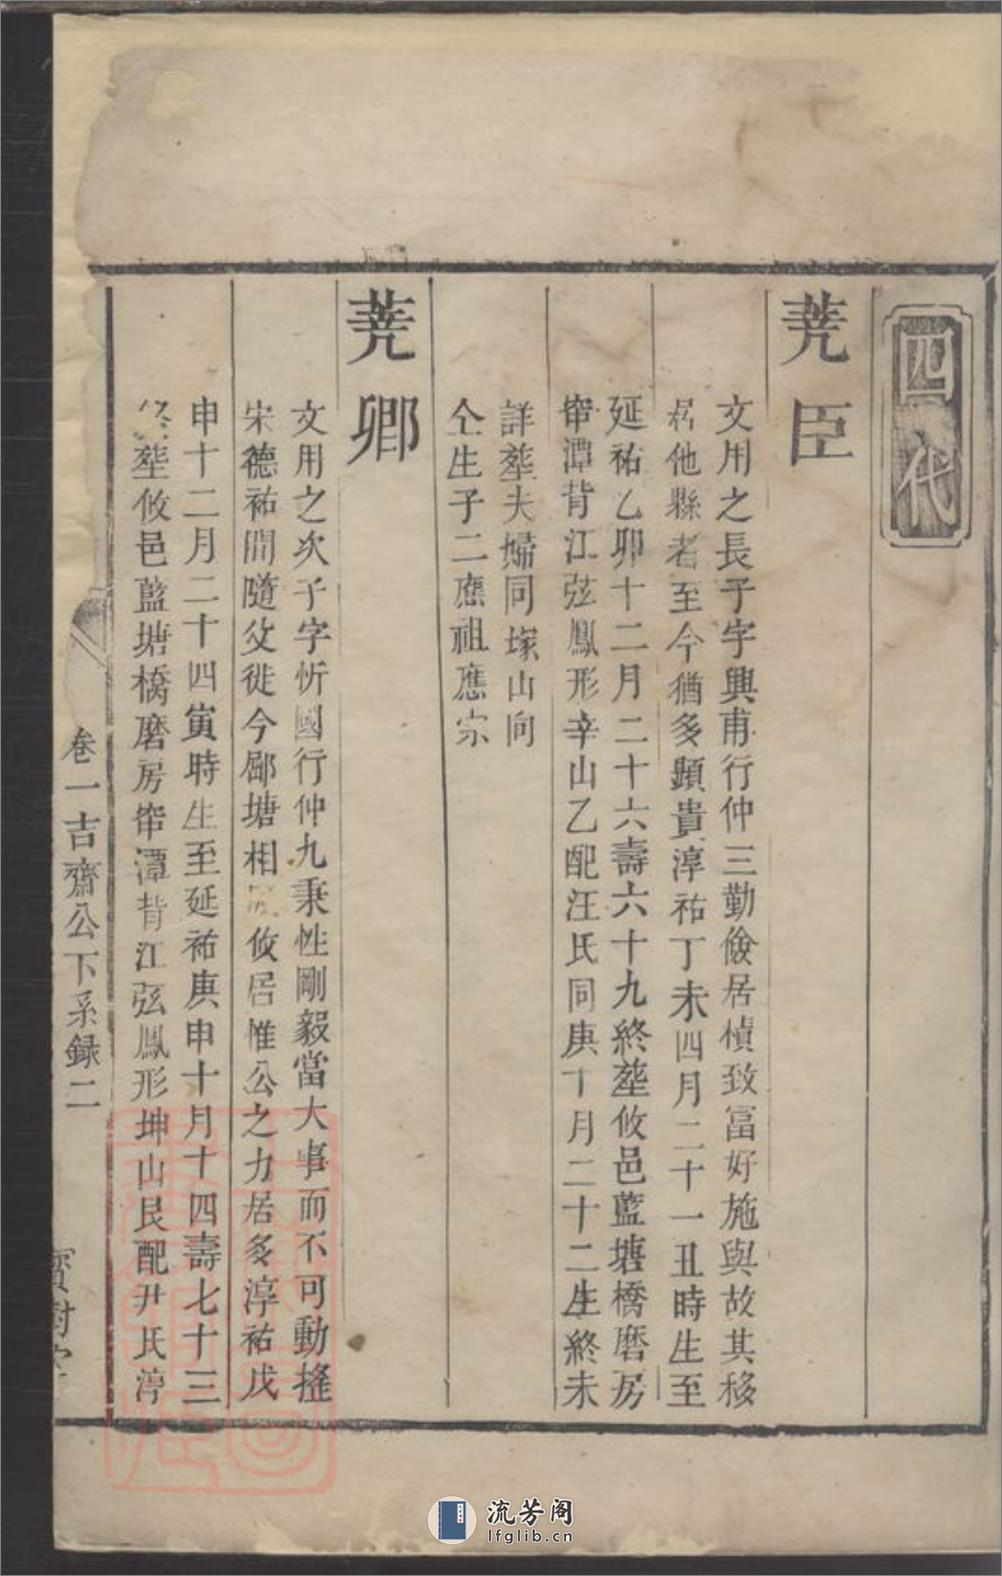 四代
堯臣
文用之長子字興甫行仲三勤儉居積致富好施與故其移
居他縣者至今猶多顯貴淳祐丁未四月二十一丑時生至
延祐乙卯十二月二十六壽六十九終塟攸邑藍塘橋磨房
窂潭背江弦鳳形辛山乙配汪氏同庚十月二十二生終未
詳塟夫婦同塚山向
仝生子二應祖應宗
堯卿
文用之次子字忻國行仲九秉性剛毅當大事而不可動搖
宋德祐間隨父徙今鄢塘相 攸居惟公之力居多淳祐戊
申十二月二十四寅時生至延祐庚申十月十四壽七十三
終塟攸邑藍塘橋磨房窂潭背江弦鳳形坤山艮配尹氏淳
卷一吉齋公下系錄二
流芳阁
lfglib.cn